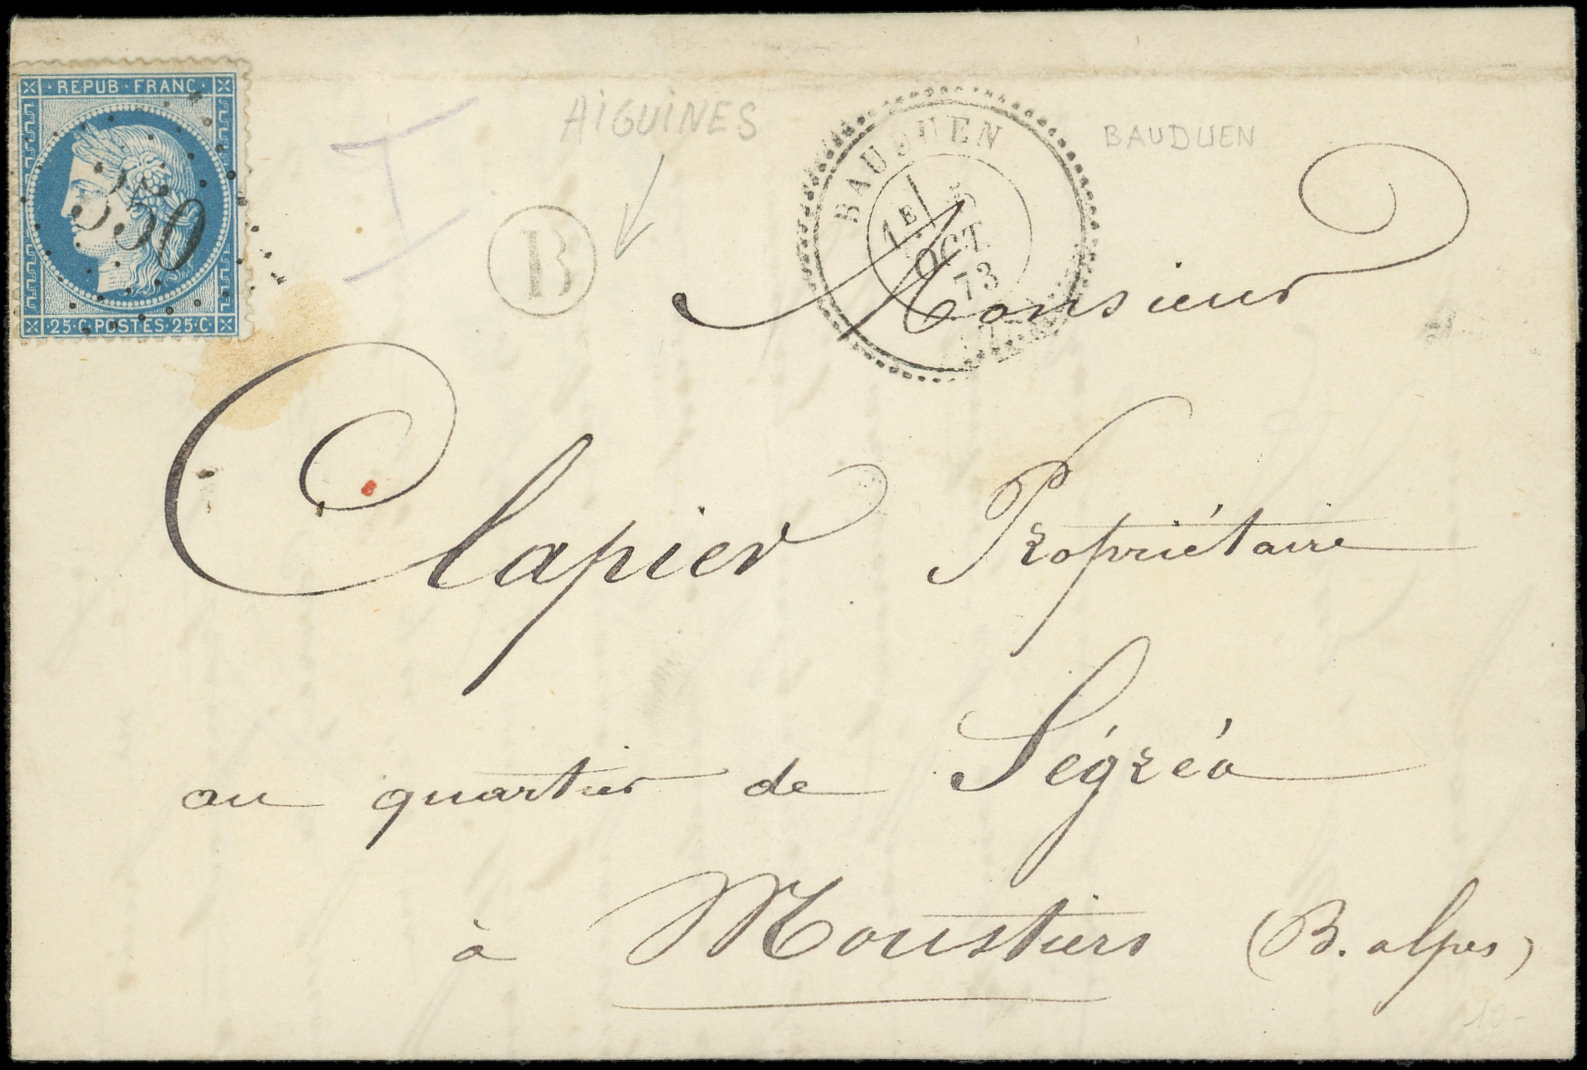 REPUB · FRANC ·
350
25 · C · POSTES · 25 · C
I
AIGUINES
B
BAUDUEN
1E
5
OCT.
73
BAUDUEN
Monsieur
Clapier Propriétaire
au quartier de Ségréa
à Moustiers (B. alpes)
10-